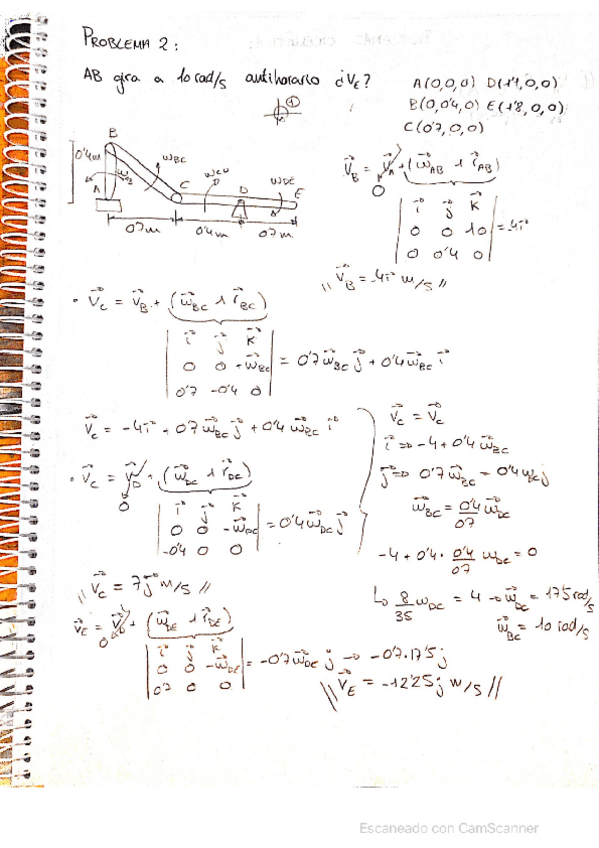 PROBLEMA 2:
AB gira a 10 rad/s antihorario ¿V_E?
A(0,0,0) D(1'1,0,0)
B(0,0'4,0) E(1'8,0,0)
C(0'7,0,0)
B
0'4m
A
ω_BC
C
ω_CD
D
ω_DE
E
0'7m
0'4m
0'7m
V_B = V_A + (ω_AB ∧ r_AB)
0
i j k
0 0 10 = -4i
0 0'4 0
\\ V_B = -4i m/s //
· V_C = V_B + (ω_BC ∧ r_BC)
i j k
0 0 -ω_BC = 0'7 ω_BC j + 0'4 ω_BC i
0'7 -0'4 0
V_C = -4i + 0'7 ω_BC j + 0'4 ω_BC i
· V_C = V_D + (ω_DC ∧ r_DC)
0
i j k
0 0 -ω_DC = 0'4 ω_DC j
-0'4 0 0
V_C = V_C
i ⇒ -4 + 0'4 ω_BC
j ⇒ 0'7 ω_BC = 0'4 ω_DC j
ω_BC = 0'4/0'7 ω_DC
-4 + 0'4 · 0'4/0'7 ω_DC = 0
↳ 8/35 ω_DC = 4 → ω_DC = 17'5 rad/s
ω_BC = 10 rad/s
\\ V_C = 7j m/s //
V_E = V_D + (ω_DE ∧ r_DE)
0
i j k
0 0 -ω_DE = -0'7 ω_DE j → -0'7·17'5j
0'7 0 0
\\ V_E = -12'25j m/s //
Escaneado con CamScanner